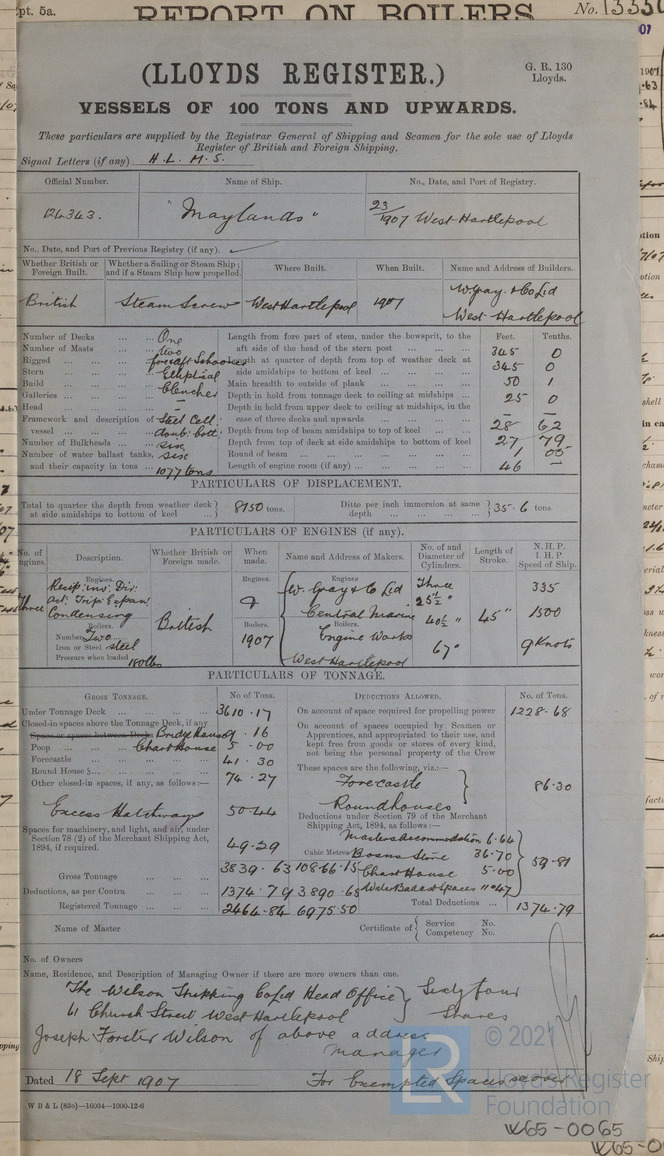 pt. 5a.
REPORT ON BOILERS
No. 13350
(LLOYDS REGISTER.)
G. R. 130
Lloyds.
VESSELS OF 100 TONS AND UPWARDS.
These particulars are supplied by the Registrar General of Shipping and Seamen for the sole use of Lloyds
Register of British and Foreign Shipping.
Signal Letters (if any) H. L. M. S.
Official Number. Name of Ship. No., Date, and Port of Registry.
124343. "Maylands" 23/1907 West Hartlepool
No., Date, and Port of Previous Registry (if any).
Whether British or Foreign Built. Whether a Sailing or Steam Ship; and if a Steam Ship how propelled. Where Built. When Built. Name and Address of Builders.
British Steam Screw West Hartlepool 1907 W. Gray & Co Ld West Hartlepool
Number of Decks One
Number of Masts Two
Rigged fore & aft Schooner
Stern Elliptical
Build Clencher
Galleries –
Head –
Framework and description of vessel Steel Cell: doub: bott:
Number of Bulkheads six
Number of water ballast tanks, six
and their capacity in tons 1077 tons
Feet. Tenths.
Length from fore part of stem, under the bowsprit, to the aft side of the head of the stern post 345 0
Length at quarter of depth from top of weather deck at side amidships to bottom of keel 345 0
Main breadth to outside of plank 50 1
Depth in hold from tonnage deck to ceiling at midships 25 0
Depth in hold from upper deck to ceiling at midships, in the case of three decks and upwards – –
Depth from top of beam amidships to top of keel 28 62
Depth from top of deck at side amidships to bottom of keel 27 79
Round of beam 1 00
Length of engine room (if any) 46 –
PARTICULARS OF DISPLACEMENT.
Total to quarter the depth from weather deck at side amidships to bottom of keel 8150 tons.
Ditto per inch immersion at same depth 35.6 tons
PARTICULARS OF ENGINES (if any).
No. of Engines. Description. Whether British or Foreign made. When made. Name and Address of Makers. No. of and Diameter of Cylinders. Length of Stroke. N. H. P. I. H. P. Speed of Ship.
Engines. Engines. Engines
Three Recip: inv: Dir: Act: Trip: Expan Condensing
British
W. Gray & Co Ld
Central Marine
Engine Works
West Hartlepool
Three
25½"
40½"
67"
45"
335
1500
9 Knots
Boilers. Boilers. Boilers.
Number Two
Iron or Steel steel
Pressure when loaded 180 lbs
1907
PARTICULARS OF TONNAGE.
GROSS TONNAGE. No of Tons.
Under Tonnage Deck 3610.17
Closed-in spaces above the Tonnage Deck, if any
Space or spaces between Decks Bridge House 9.16
Poop Chart House 5.00
Forecastle 41.30
Round House 74.27
Other closed-in spaces, if any, as follows:—
Excess Hatchways 50.44
Spaces for machinery, and light, and air, under Section 78 (2) of the Merchant Shipping Act, 1894, if required. 49.29
Cubic Metres
Gross Tonnage 3839.63 10866.15
Deductions, as per Contra 1374.79 3890.65
Registered Tonnage 2464.84 6975.50
DEDUCTIONS ALLOWED. No. of Tons.
On account of space required for propelling power 1228.68
On account of spaces occupied by Seamen or Apprentices, and appropriated to their use, and kept free from goods or stores of every kind, not being the personal property of the Crew
These spaces are the following, viz.:—
Forecastle
Roundhouses
86.30
Deductions under Section 79 of the Merchant Shipping Act, 1894, as follows:—
Masters Accommodation 6.64
Bosns Store 36.70
Chart House 5.00
Water Ballast Spaces 11.47
59.81
Total Deductions 1374.79
Name of Master
Certificate of Service No.
Competency No.
No. of Owners
Name, Residence, and Description of Managing Owner if there are more owners than one.
The Wilson Shipping Co Ld Head Office
61 Church Street West Hartlepool
Sixty four
Shares
Joseph Forster Wilson of above address
Manager
Dated 18 Sept 1907
For Exempted Spaces see over
W B & L (83o)—10034—1000-12-6
© 2021
LR
Lloyd's Register
Foundation
W65-0065